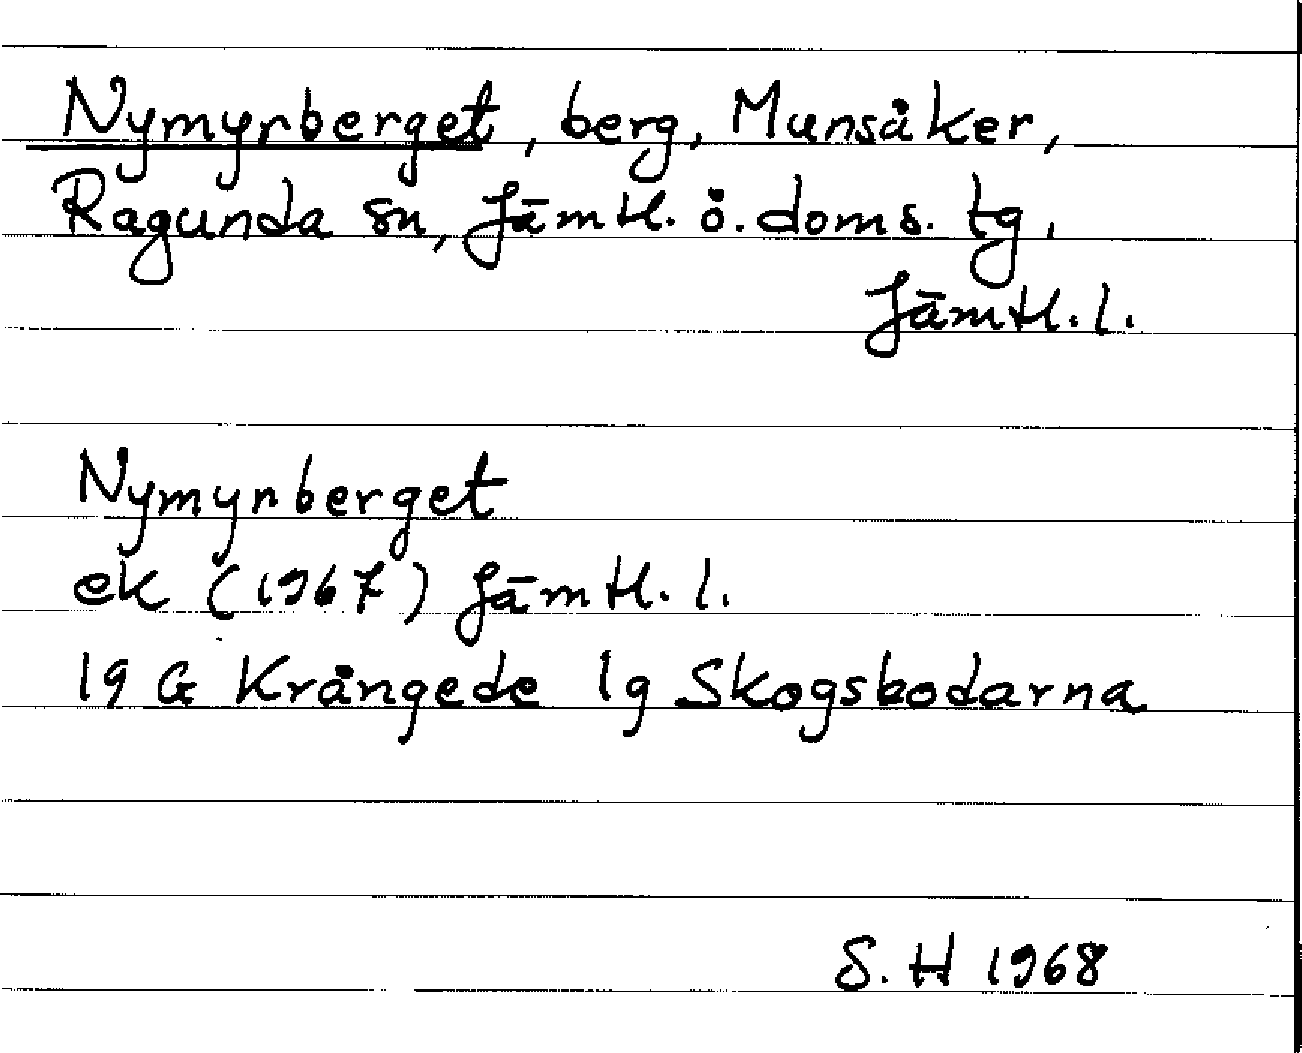 Nymyrberget, berg, Munsåker,
Ragunda sn, Jämtl. ö. doms. tg,
Jämtl. l.
Nymyrberget
ek (1967) Jämtl. l.
19 G Krångede 1g Skogsbodarna
S. H 1968